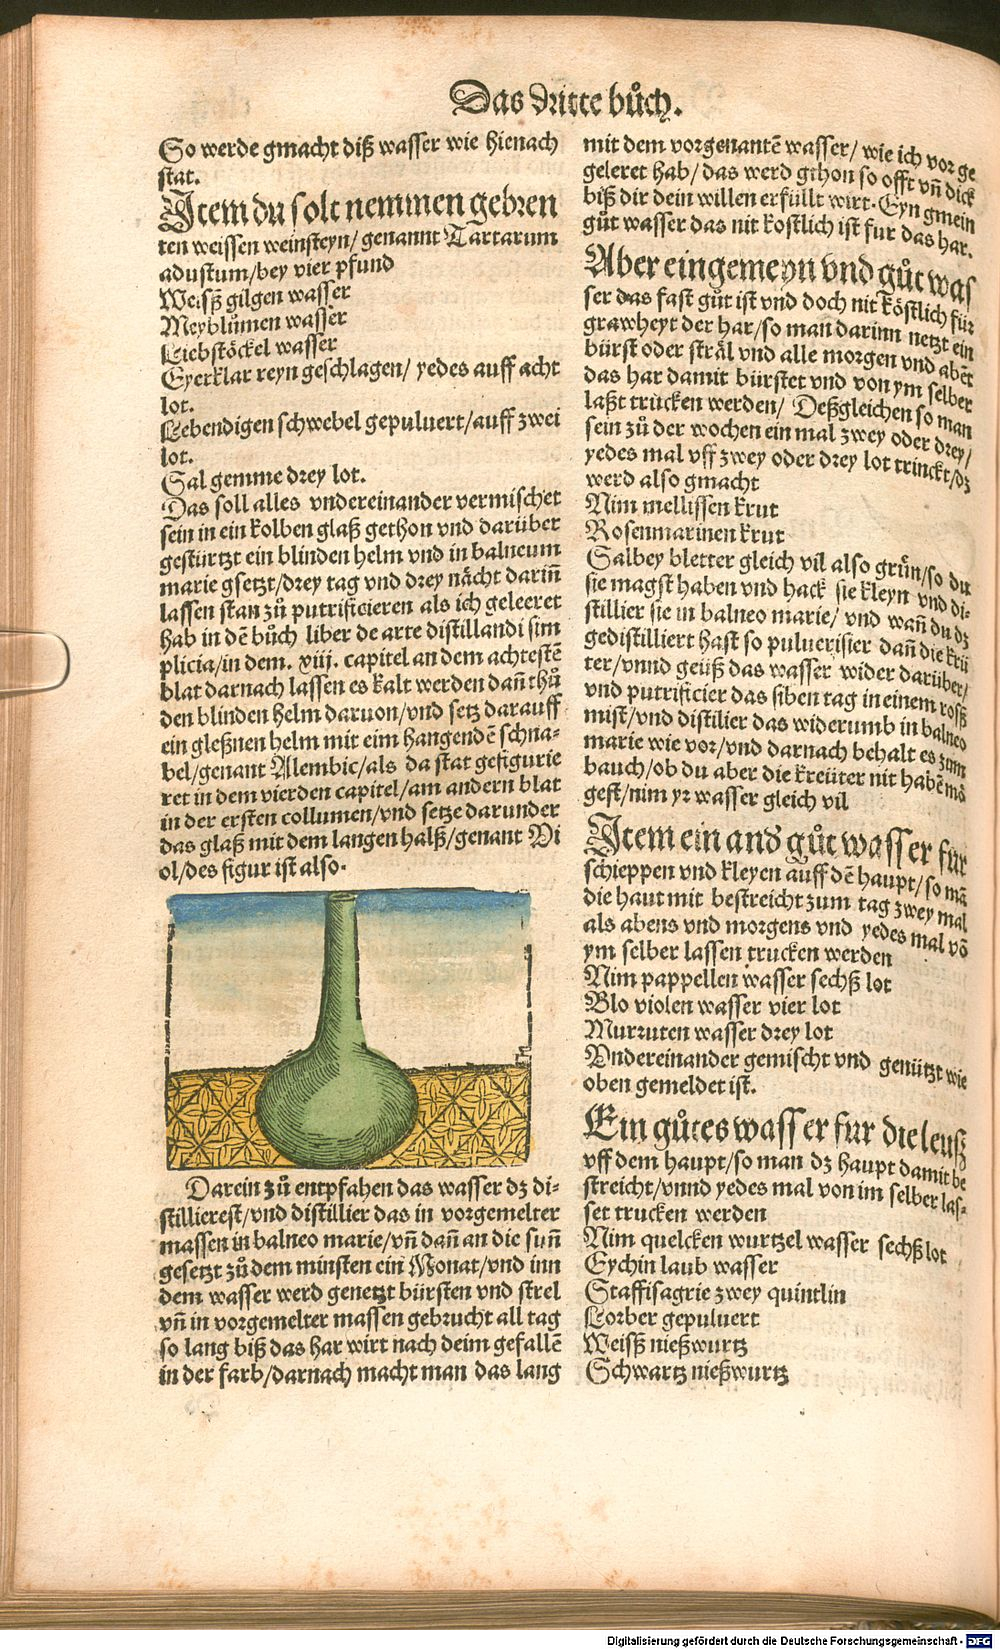 Das dritte bůch.
So werde gmacht diß wasser wie hienach
stat.
Item du solt nemmen gebren
ten weissen weinsteyn/ genannt Tartarum
adustum/bey vier pfund
Weisß gilgen wasser
Meyblůmen wasser
Liebstöckel wasser
Eyerklar reyn geschlagen/ yedes auff acht
lot.
Lebendigen schwebel gepuluert/auff zwei
lot.
Sal gemme drey lot.
Das soll alles vndereinander vermischet
sein in ein kolben glaß gethon vnd darüber
gestürtzt ein blinden helm vnd in balneum
marie gsetzt/drey tag vnd drey nächt dariñ
lassen stan zů putrificieren als ich geleeret
hab in dē bůch liber de arte distillandi sim
plicia/in dem. xiij. capitel an dem achtestē
blat darnach lassen es kalt werden dañ thů
den blinden helm daruon/vnd setz darauff
ein gleßnen helm mit eim hangendē schna-
bel/genant Alembic/als da stat gefigurie
ret in dem vierden capitel/am andern blat
in der ersten collumen/vnd setze darunder
das glaß mit dem langen halß/genant Vi
ol/des figur ist also.
Darein zů entpfahen das wasser dz di-
stillierest/vnd distillier das in vorgemelter
massen in balneo marie/vñ dañ an die suñ
gesetzt zů dem minsten ein Monat/vnd inn
dem wasser werd genetzt bürsten vnd strel
vñ in vorgemelter massen gebrucht all tag
so lang biß das har wirt nach deim gefallē
in der farb/darnach macht man das lang
mit dem vorgenantē wasser/ wie ich vor ge
geleret hab/das werd gthon so offt vñ dick
biß dir dein willen erfüllt wirt. Eyn gmein
gůt wasser das nit kostlich ist fur das har.
Aber ein gemeyn vnd gůt was
ser das fast gůt ist vnd doch nit köstlich für
grawheyt der har/so man darinn netzt ein
bürst oder sträl vnd alle morgen vnd abēt
das har damit bürstet vnd von ym selber
laßt trucken werden/ Deßgleichen so man
sein zů der wochen ein mal zwey oder drey/
yedes mal vff zwey oder drey lot trinckt/dz
werd also gmacht
Nim mellissen krut
Rosenmarinen krut
Salbey bletter gleich vil also grün/so du
sie magst haben vnd hack sie kleyn vnd di-
stillier sie in balneo marie/ vnd wañ du dz
gedistilliert hast so puluerisier dañ die krü
ter/vnnd geüß das wasser wider darüber/
vnd putrificier das siben tag in einem rosß
mist/vnd distilier das widerumb in balneo
marie wie vor/vnd darnach behalt es zum
bauch/ob du aber die kreüter nit habē mö
gest/nim yr wasser gleich vil
Item ein and gůt wasser für
schieppen vnd kleyen auff dē haupt/so mā
die haut mit bestreicht zum tag zwey mal
als abens vnd morgens vnd yedes mal vō
ym selber lassen trucken werden
Nim pappellen wasser sechß lot
Blo violen wasser vier lot
Murruten wasser drey lot
Vndereinander gemischt vnd genützt wie
oben gemeldet ist.
Ein gůtes wasser fur die leuß
vff dem haupt/so man dz haupt damit be
streicht/vnnd yedes mal von im selber las-
set trucken werden
Nim quelcken wurtzel wasser sechß lot
Eychin laub wasser
Staffisagrie zwey quintlin
Lorber gepuluert
Weisß nießwurtz
Schwartz nießwurtz
Digitalisierung gefördert durch die Deutsche Forschungsgemeinschaft - DFG